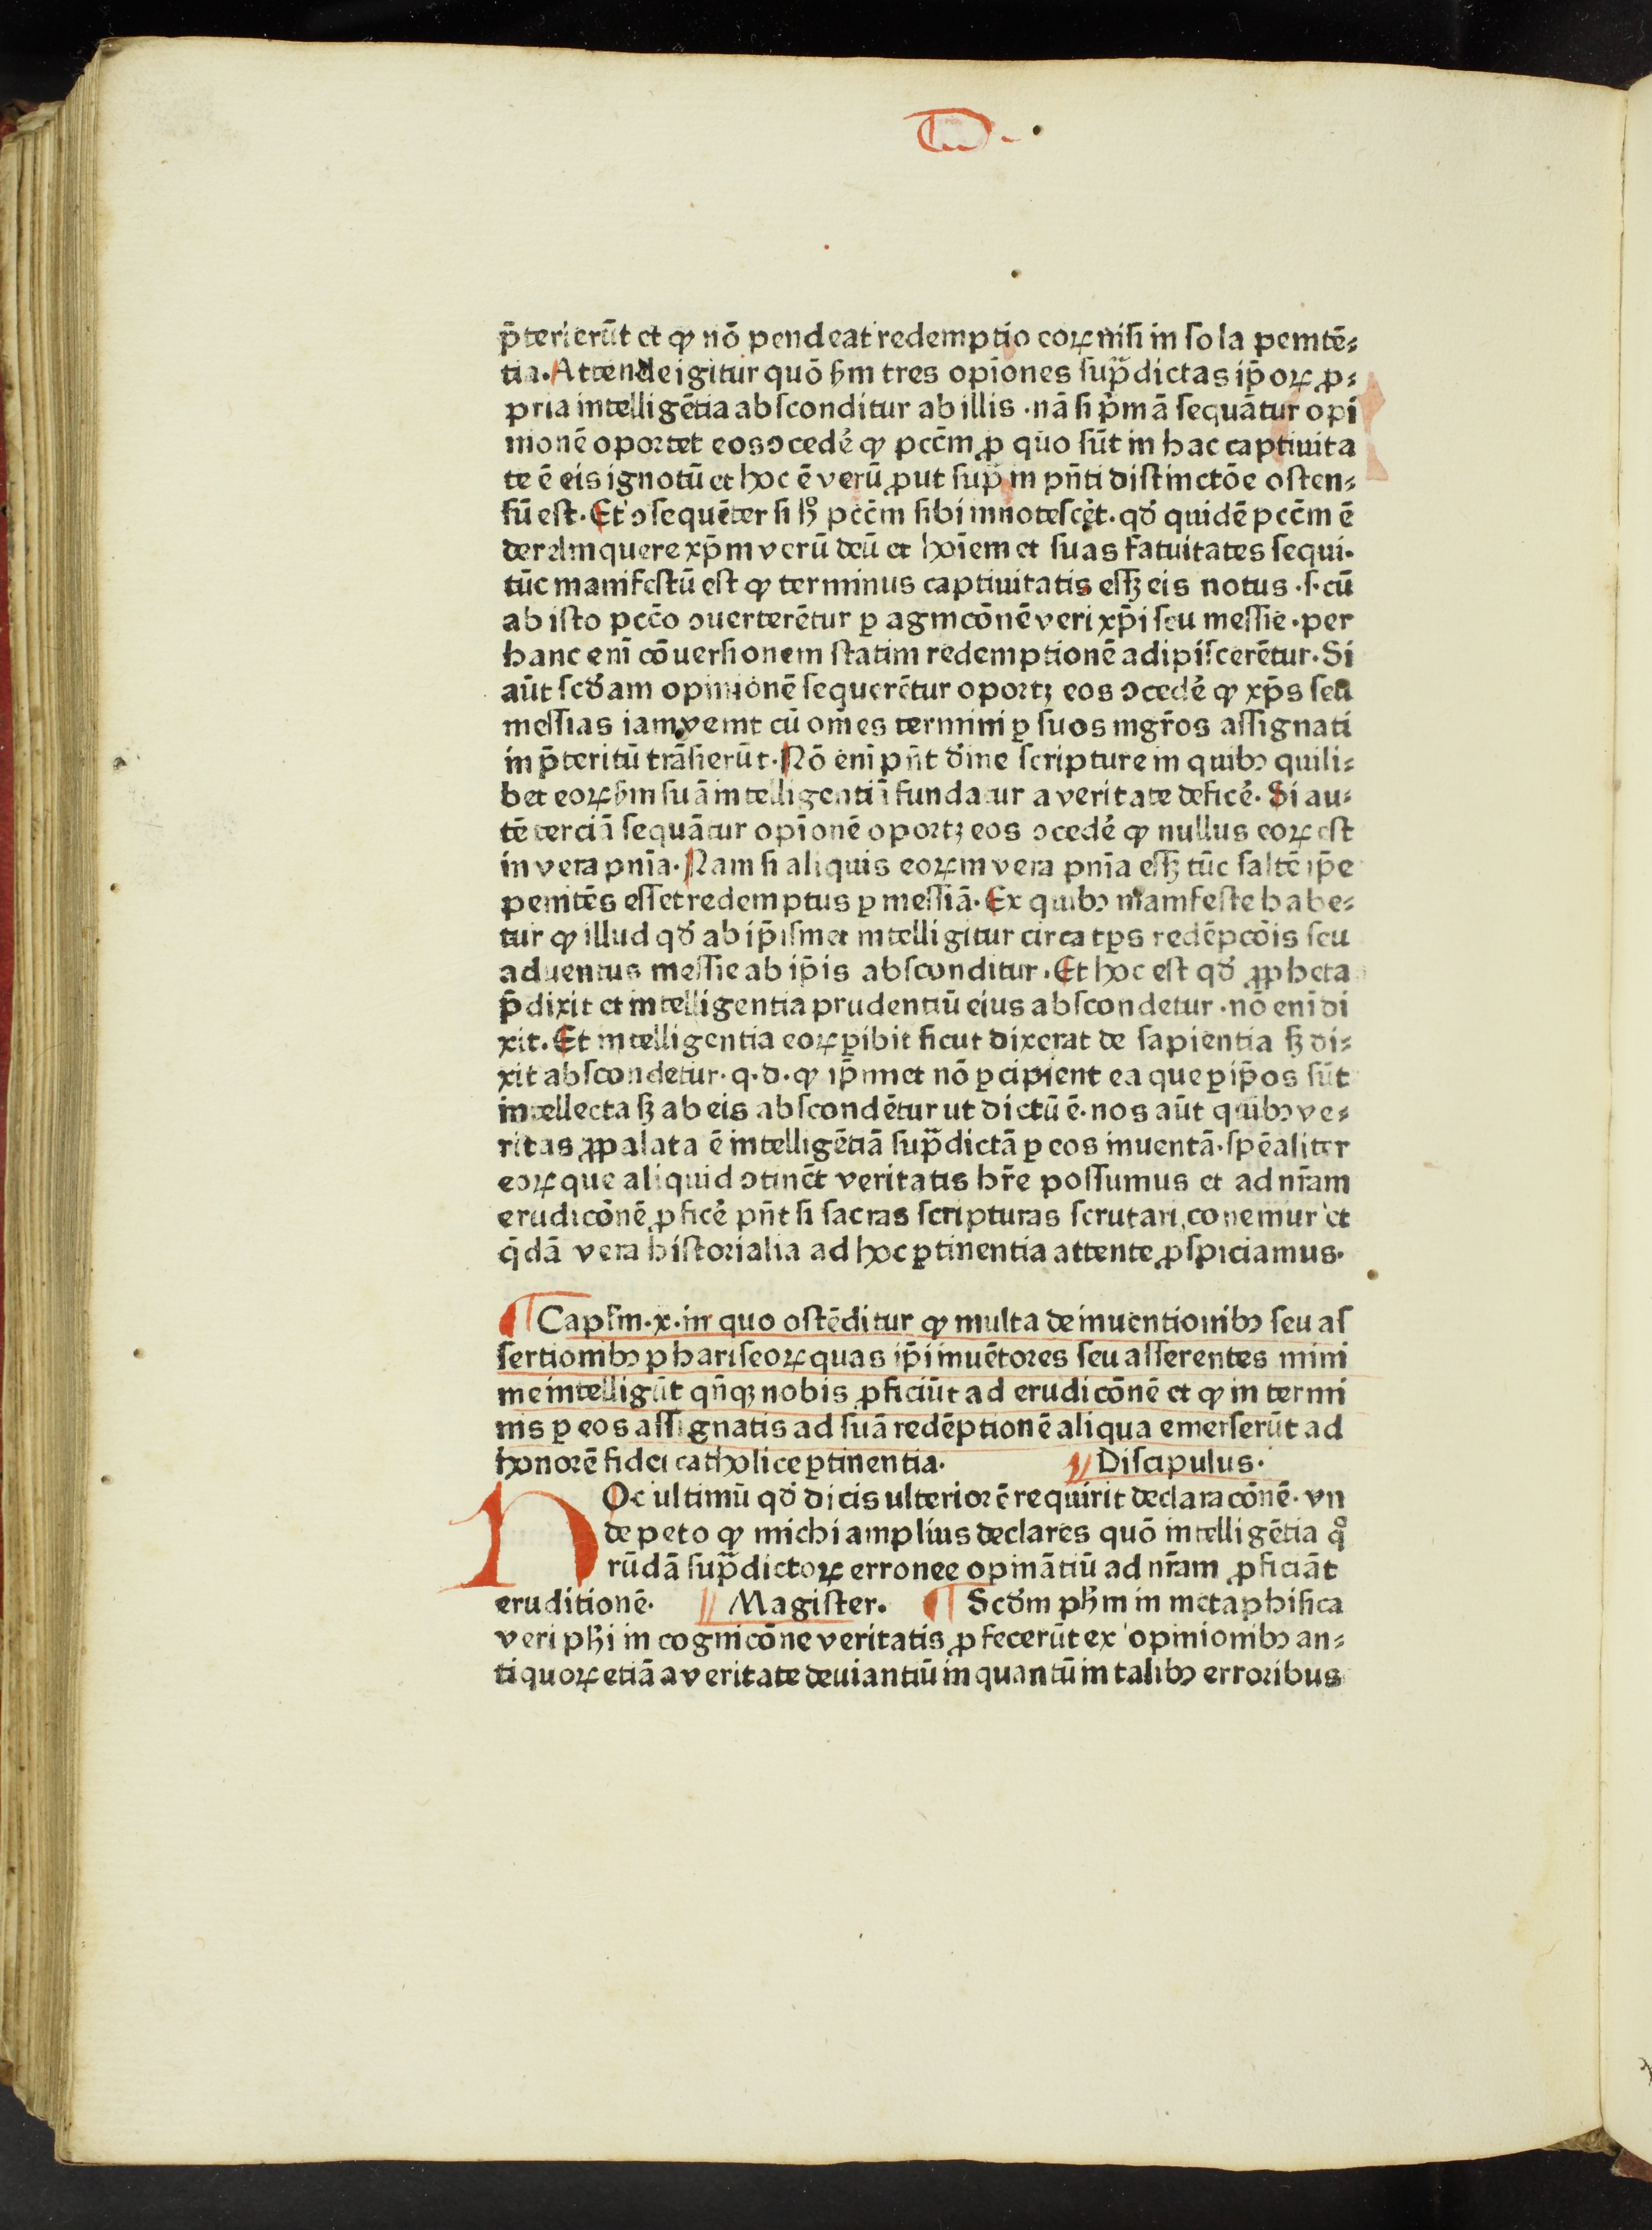 p̄terierūt et ꝙ nō pendeat redemptio eoꝝ nisi in sola penitē⸗
tia. Attende igitur quō ẜm tres opiōnes sup̄dictas ip̄oꝝ ꝓ⸗
pria intelligētia absconditur ab illis · nā si p̄mā sequātur opi
nionē oportet eos ɔcedē ꝙ pcc̄m ꝓ quo sūt in hac captiuita
te ē eis ignotū et hoc ē verū ꝓut sup̄ in pn̄ti distinctōe osten⸗
sū est. Et ɔsequēter si hͦ pcc̄m sibi innotescēt. qd̄ quidē pcc̄m ē
derelinquere xp̄m verū deū et hoīem et suas fatuitates sequi.
tūc manifestū est ꝙ terminus captiuitatis eſſꝫ eis notus .s. cū
ab isto pcc̄o ɔuerterētur ꝑ agnicōnē veri xp̄i seu messie. per
hanc enī cōuersionem statim redemptionē adipiscerētur. Si
aūt scd̄am opinionē sequerētur oportꝫ eos ɔcedē ꝙ xp̄s seu
messias iam venit cū om̄es termini ꝑ suos mgr̄os assignati
in p̄teritū trāsierūt. Nō enī pn̄t diīne scripture in quibꝰ quili⸗
bet eoꝝ ẜm suā intelligentiā fundatur a veritate deficē. Si au⸗
tē terciā sequātur opiōnē oportꝫ eos ɔcedē ꝙ nullus eoꝝ est
in vera pnīa. Nam si aliquis eoꝝ in vera pnīa eſſꝫ tūc saltē ip̄e
penitēs esset redemptus ꝑ messiā. Ex quibꝰ manifeste habe⸗
tur ꝙ illud qd̄ ab ip̄ismet intelligitur circa tp̄s redēpcōis seu
aduentus messie ab ip̄is absconditur. Et hoc est qd̄ ꝓpheta
p̄dixit et intelligentia prudentiū eius abscondetur. nō enī di
xit. Et intelligentia eoꝝ ꝑibit sicut dixerat de sapientia sꝫ di⸗
xit abscondetur. q. d. ꝙ ip̄imet nō ꝑcipient ea que ꝑ ip̄os sūt
intellecta sꝫ ab eis abscondētur ut dictū ē. nos aūt quibꝰ ve⸗
ritas ꝓpalata ē intelligētiā sup̄dictā ꝑ eos inuentā. spēaliter
eoꝝ que aliquid ɔtinēt veritatis hr̄e possumus et ad nr̄am
erudicōnē ꝓficē pn̄t si sacras scripturas scrutari conemur et
q̄dā vera historialia ad hoc ꝑtinentia attente ꝓspiciamus.
¶ Capl̄m. x. in quo ostēditur ꝙ multa de inuentionibꝰ seu as
sertionibꝰ phariseoꝝ quas ip̄i inuētores seu asserentes mini
me intelligūt qn̄qꝫ nobis ꝓficiūt ad erudicōnē et ꝙ in termi
nis ꝑ eos assignatis ad suā redēptionē aliqua emerserūt ad
honorē fidei catholice ꝑtinentia. Discipulus.
HOc ultimū qd̄ dicis ulteriorē requirit declaracōnē. vn
de peto ꝙ michi amplius declares quō intelligētia qͦ
rūdā sup̄dictoꝝ erronee opinātiū ad nr̄am ꝓficiāt
eruditionē. Magister. ¶ Scd̄m ph̄m in metaphisica
veri ph̄i in cognicōne veritatis ꝓfecerūt ex opinionibꝰ an⸗
tiquoꝝ etiā a veritate deuiantiū in quantū in talibꝰ erroribus